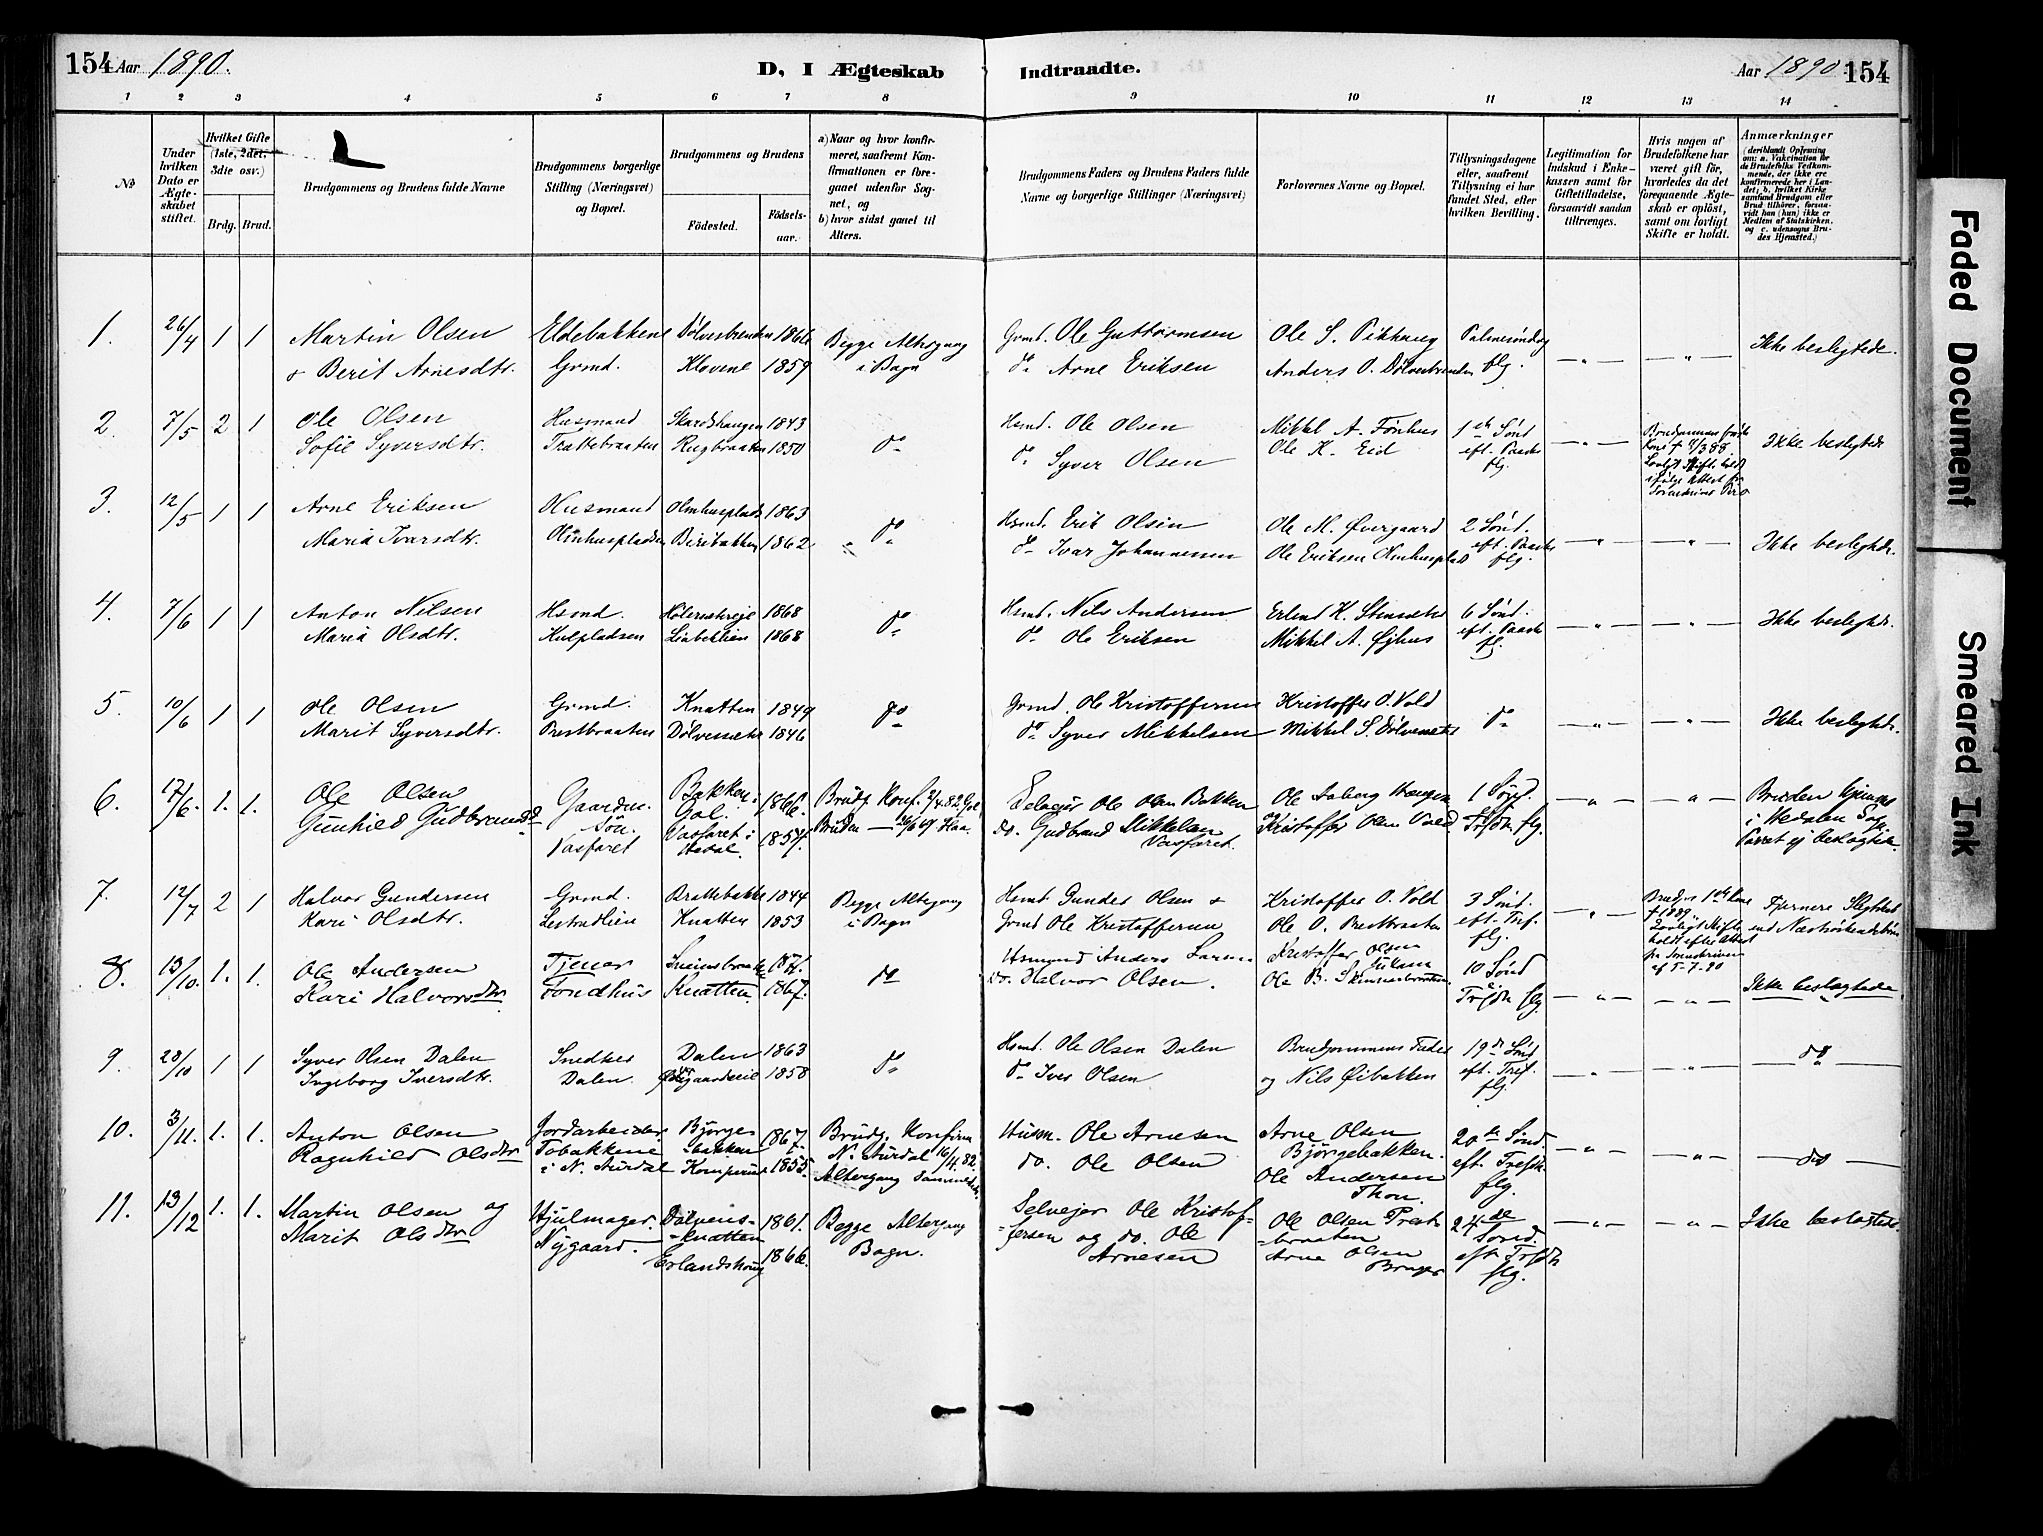 154 Aar 1890.
D, I Ægteskab Indtraadte.
Aar 1890 154
1 2 3 4 5 6 7 8 9 10 11 12 13 14
No
Under hvilken Dato er Ægteskabet stiftet.
Hvilket Gifte (1ste, 2det, 3die osv.)
Brdg. Brud.
Brudgommens og Brudens fulde Navne
Brudgommens borgerlige Stilling (Næringsvei) og Bopæl.
Brudgommens og Brudens
Fødested. Fødselsaar.
a) Naar og hvor konfirmeret, saafremt Konfirmationen er foregaaet udenfor Sognet, og
b) hvor sidst gaaet til Alters.
Brudgommens Faders og Brudens Faders fulde Navne og borgerlige Stillinger (Næringsvei)
Forlovernes Navne og Bopæl.
Tillysningsdagene eller, saafremt Tillysning ei har fundet Sted, efter hvilken Bevilling.
Legitimation for Indskud i Enkekassen samt for Giftetilladelse, forsaavidt saadan tiltrænges.
Hvis nogen af Brudefolkene har været gift før, hvorledes da det foregaaende Ægteskab er opløst, samt om lovligt Skifte er holdt.
Anmærkninger (deriblandt Oplysning om: a. Vakcination for de Brudefolks Vedkommende, der ikke ere konfirmerede her i Landet; b. hvilket Kirkesamfund Brudgom eller Brud tilhører, forsaavidt han (hun) ikke er Medlem af Statskirken, og c. udensogns Brudes Hjemsted.)
1. 26/4 1 1 Martin Olsen Eldebakkene Dølvesbrenden 1866 Begge Altergang Grmd. Ole Guttormsen Ole S. Pikhaug Palmesøndag
& Berit Arnesdtr. Grmd. Klovene 1859 i Bagn do Arne Eriksen Anders O. Dølvesbrenden flg. —„— —„— Ikke beslegtede.
2. 7/5 2 1 Ole Olsen Husmand Skardshaugen 1843 Hsmd. Ole Olsen Mikkel A. Fønhus 1ste Sønd
Sofie Syversdtr. Trattebraaten Rugbraaten 1850 do do Syver Olsen Ole K. Eid eft. Paaske flg. —„— Brudgommens første Kone † 8/3 88. Ikke beslegtede
3. 12/5 1 1 Arne Eriksen Husmand Olmhusplads 1863 Hsmd. Erik Olsen Ole M. Øvergaard 2 Sønd.
Maria Ivarsdtr. Beribakken 1862 do do Ivar Johannesen Ole Eriksen eft. Paaske flg. —„— —„— Ikke beslegtede.
4. 7/6 1 1 Anton Nilsen Hsmd. 1868 Hsmd. Nils Andersen Erlend K. Stensæter 6 Sønd.
Maria Olsdtr. Kulpladsen 1868 do do Ole Eriksen Mikkel A. eft. Paaske fl. —„— —„— Ikke beslegtede.
5. 10/6 1 1 Ole Olsen Grmd. Knatten 1849 Grmd. Ole Kristoffersen Kristoffer O. Vold
Marit Syversdtr. Prestbraaten Dølvesæter 1846 do do Syver Mikkelsen Mikkel S. Dølvesæter do —„— —„— Ikke beslegtede.
6. 17/6. 1. 1. Ole Olsen Gaardm. Bakken i Gol. 1866. Brudg. Konf. 2/4. 82. Gol. Selveier Ole Olsen Bakken Ole Aaberg Haugen 1 Sønd.
Gunhild Gudbrandsd Søn. Vasfaret Vasfaret i Hedal. 1857. Bruden — 69 Flaa. do. Gudbrand Mikkelsen Vasfaret. Kristoffer Olsen Vold Trefdh. flg. —„— —„— Bruden hjemme i Hedalen Sogn Parret ej beslægtede.
7. 12/7 2 1 Halvor Gundersen Grmd. Brattebakke 1844 Begge Altergang Hsmd. Gunder Olsen & Kristoffer O. Vold 3 Sønd.
Kari Olsdtr. Lestrudlien Knatten 1853 i Bagn Grmd Ole Kristoffersen Ole O. Prestbraaten eft. Tref. flg. —„— Brudgs 1ste Kone † 1889 Lovligt Skifte holdt efter Attest fra Sorenskriveren af 5-7-90
8. 13/10. 1. 1. Ole Andersen Tjener 1871. Husmand Anders Larsen Kristoffer Olsen 10 Sønd
Kari Halvorsdtr Fondhus Knatten. 1867. do do. Halvor Olsen. Ole B. e. Trefdh flg. —„— —„— Ikke beslægtede
9. 28/10 1 1 Syver Olsen Dalen Snedker Dalen 1863 Hsmd. Ole Olsen Dalen Brudgommens Fader 19de Sønd
Ingeborg Iversdtr. Dalen. 1858 do do Iver Olsen og Nils Øibakken eft. Tref. flg. —„— —„— do
10. 3/11. 1. 1. Anton Olsen Jordarbeider Bjørgebakken 1867. Brudg. Konfirm. Husm. Ole Arnesen Arne Olsen Bjørgebakken. 20de Sønd.
Ragnhild Olsdtr Tobakkene i N. Aurdal 1855. N. Aurdal 16/4. 82. Altergang sammesteds. do. Ole Olsen Ole Andersen Thon. eft. Trefdh. flg. —„— —„— do
11. 13/12 1. 1. Martin Olsen og Hjulmager. Dølvens-knatten 1861. Begge Altergang Selvejer Ole Kristof- Ole Olsen Prest- 24de Sønd.
Marit Olsdtr Nygaard. Erlandshoug 1866. Bagn. fersen og do. Ole Arnesen braaten Arne Olsen eft. Trefdh flg. —„— —„— Ikke beslægtede
Faded Document
Smeared Ink